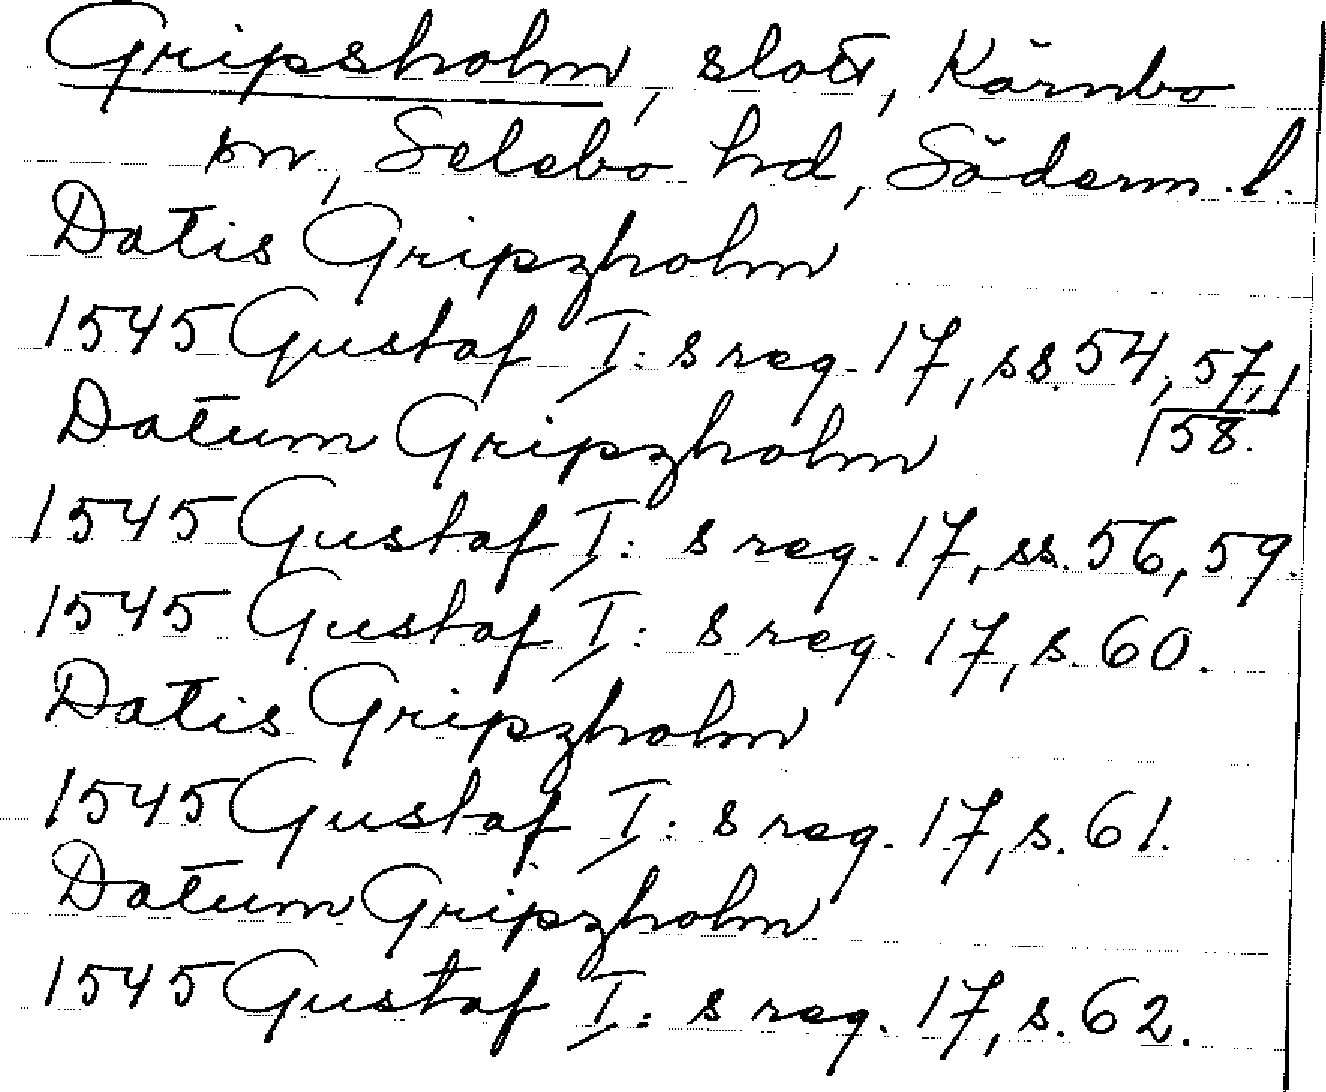 Gripsholm, slott, Kärnbo
sn, Selebo hd, Söderm. l.
Datis Gripzholm
1545 Gustaf I: s reg. 17, ss. 54, 57,
58.
Datum Gripzholm
1545 Gustaf I: s reg. 17, ss. 56, 59.
1545 Gustaf I: s reg. 17, s. 60.
Datis Gripzholm
1545 Gustaf I: s reg. 17, s. 61.
Datum Gripzholm
1545 Gustaf I: s reg. 17, s. 62.